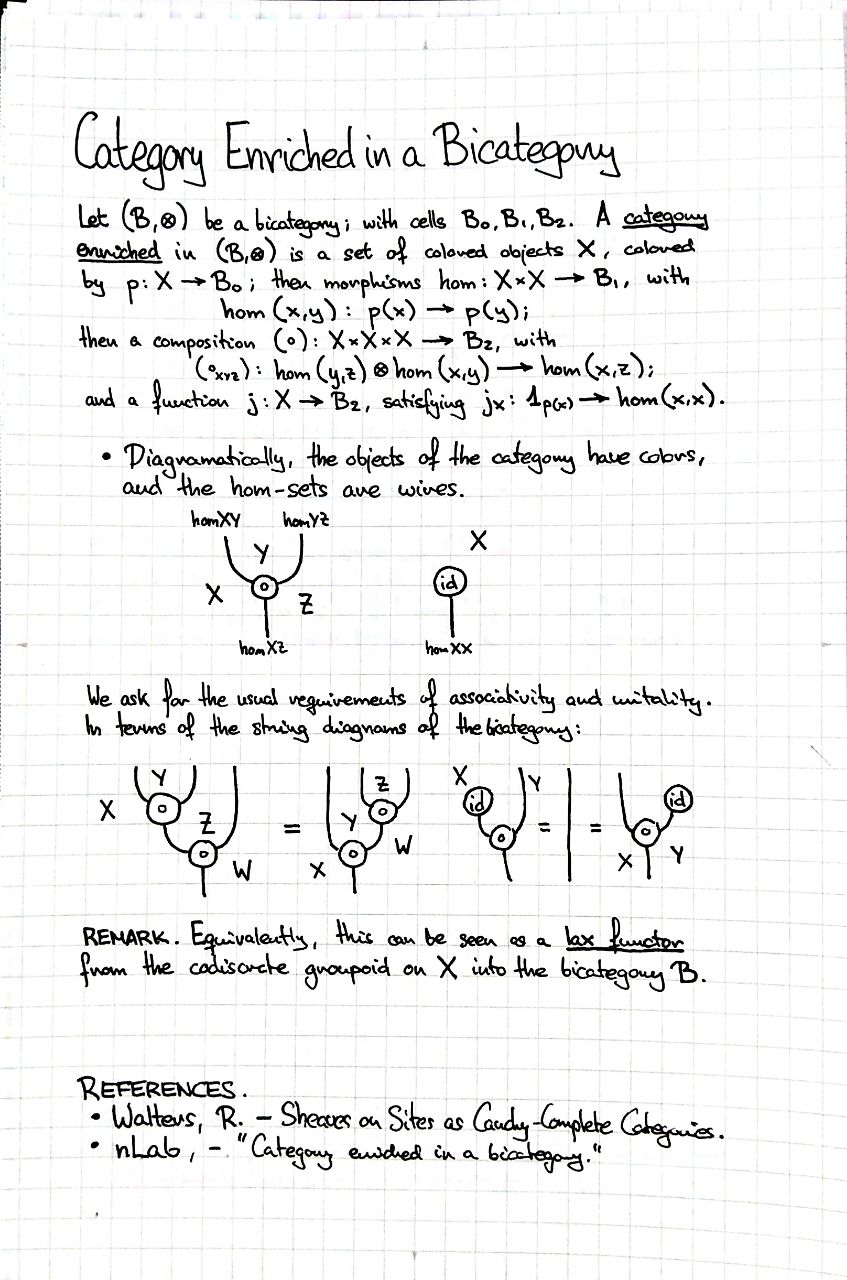 Category Enriched in a Bicategory
Let (B,⊗) be a bicategory; with cells B₀, B₁, B₂. A category
enriched in (B,⊗) is a set of colored objects X, colored
by p: X → B₀; then morphisms hom: X×X → B₁, with
hom (x,y): p(x) → p(y);
then a composition (∘): X×X×X → B₂, with
(∘xyz): hom(y,z) ⊗ hom(x,y) → hom(x,z);
and a function j: X → B₂, satisfying jx: 1p(x) → hom(x,x).
• Diagramatically, the objects of the category have colors,
and the hom-sets are wires.
homXY homYZ
X Y Z
homXZ
X
id
homXX
We ask for the usual requirements of associativity and unitality.
In terms of the string diagrams of the bicategory:
X Y Z W = X Y Z W
X id Y = = id X Y
REMARK. Equivalently, this can be seen as a lax functor
from the codiscrete groupoid on X into the bicategory B.
REFERENCES.
• Walters, R. – Sheaves on Sites as Cauchy-Complete Categories.
• nLab, – "Category enriched in a bicategory."